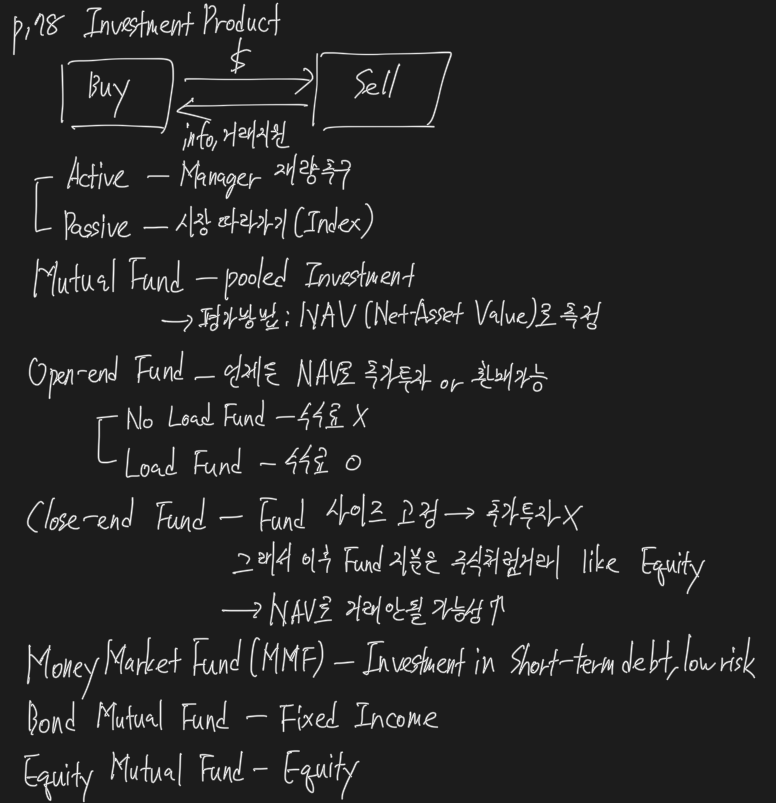 p.78 Investment Product
$
Buy
Sell
info, 거래지원
Active — Manager 재량추구
Passive — 시장 따라가기 (Index)
Mutual Fund — pooled Investment
→ 평가방법: NAV (Net-Asset Value)로 측정
Open-end Fund — 언제든 NAV로 추가투자 or 환매가능
No Load Fund — 수수료 X
Load Fund — 수수료 O
Close-end Fund — Fund 사이즈 고정 → 추가투자 X
그래서 이후 Fund 지분은 주식처럼거래 like Equity
→ NAV로 거래안될 가능성↑
Money Market Fund (MMF) — Investment in Short-term debt, low risk
Bond Mutual Fund — Fixed Income
Equity Mutual Fund — Equity